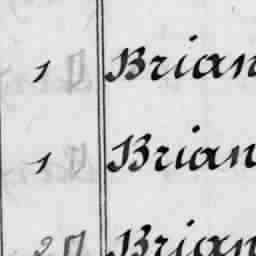 1 Brian
1 Brian
2 Brian